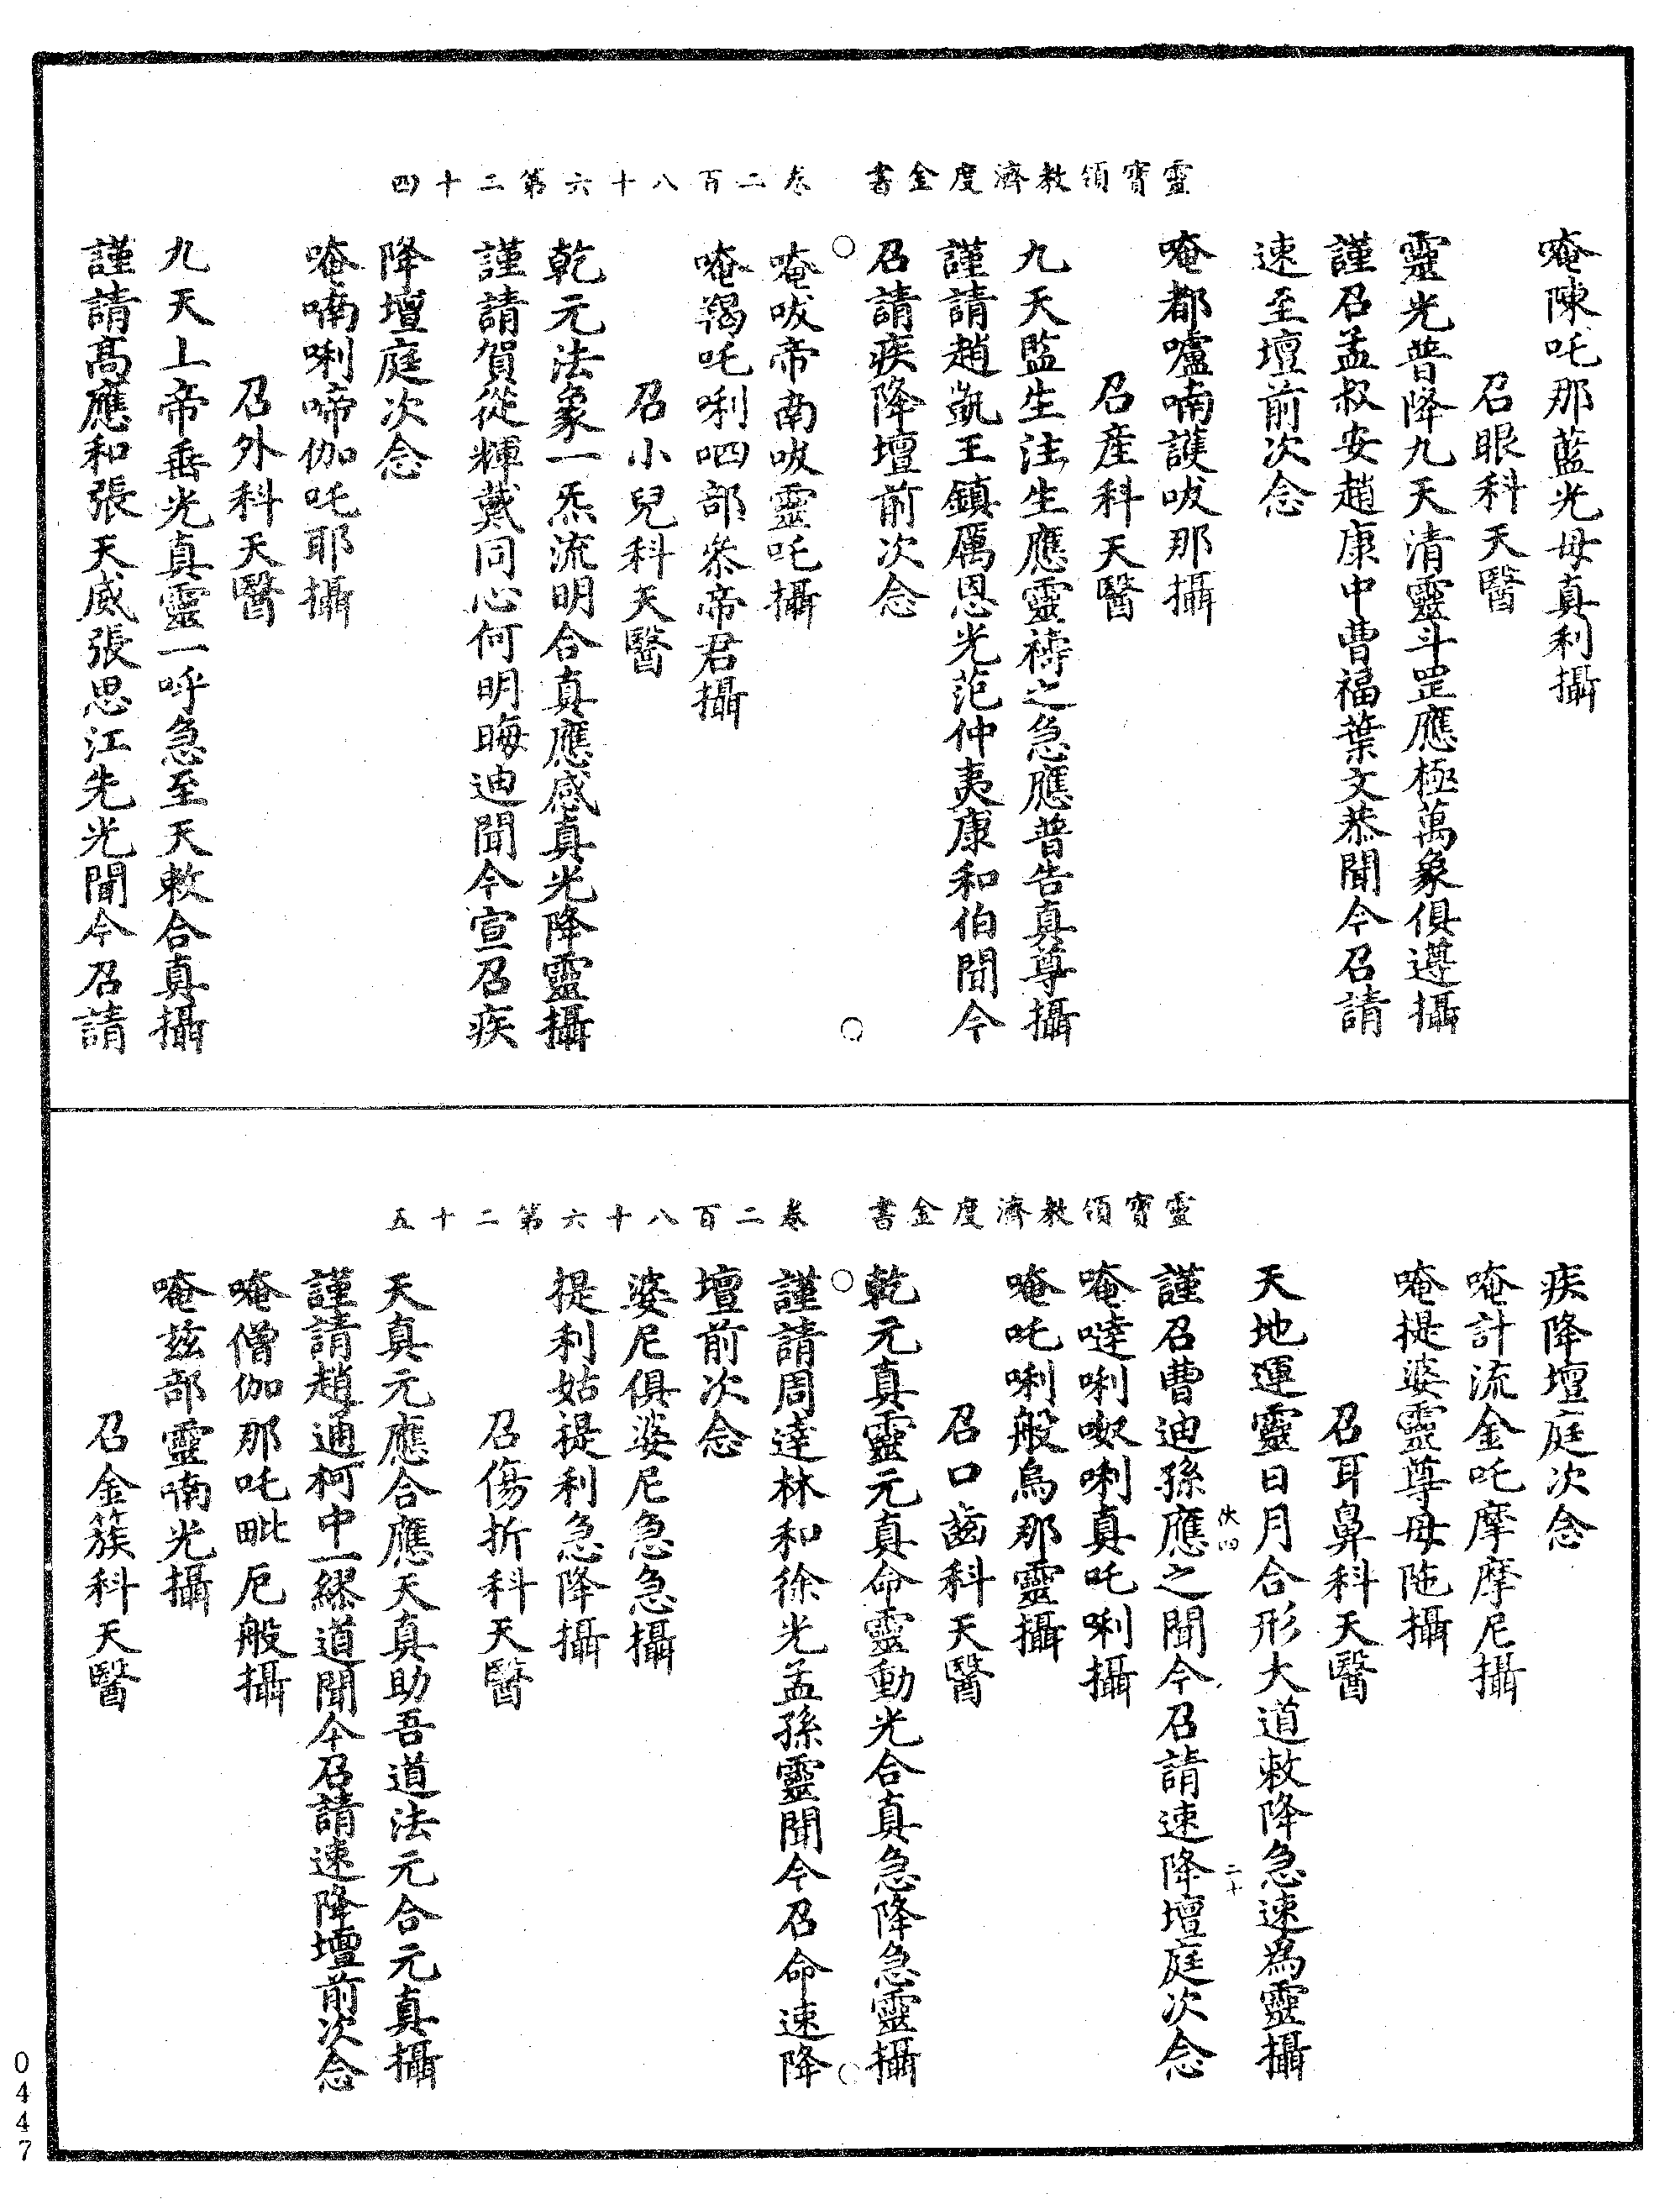 靈寶領教濟度金書　卷二百八十六第二十四
唵陳吒那藍光母真利攝
召眼科天醫
靈光普降九天清靈斗罡應極萬象俱遵攝
謹召孟叔安趙康中曹福葉文恭聞今召請
速至壇前次念
唵都嚧喃護㕹那攝
召產科天醫
九天監生注生應靈禱之急應普告真尊攝
謹請趙凱王鎮厲恩光范仲夷康和伯聞今
召請疾降壇前次念
唵㕹帝南㕹靈吒攝
唵羯吒唎呬部叅帝君攝
召小兒科天醫
乾元法象一炁流明合真應感真光降靈攝
謹請賀從輝戴同心何明晦迪聞今宣召疾
降壇庭次念
唵喃唎啼伽吒耶攝
召外科天醫
九天上帝垂光真靈一呼急至天敕合真攝
謹請高應和張天威張思江先光聞今召請
靈寶領教濟度金書　卷二百八十六第二十五
疾降壇庭次念
唵計流金吒摩摩尼攝
唵提婆靈尊母陁攝
召耳鼻科天醫
天地運靈日月合形大道敕降急速為靈攝
四
二十
謹召曹迪孫應之聞今召請速降壇庭次念
唵噠唎㘑唎真吒唎攝
唵吒唎般烏那靈攝
召口齒科天醫
乾元真靈元真命靈動光合真急降急靈攝
謹請周達林和徐光孟孫靈聞今召命速降
壇前次念
婆尼俱婆尼急急攝
提利姑提利急降攝
召傷折科天醫
天真元應合應天真助吾道法元合元真攝
謹請趙通柯中一繆道聞今召請速降壇前次念
唵僧伽那吒毗厄般攝
唵茲部靈喃光攝
召金簇科天醫
0447